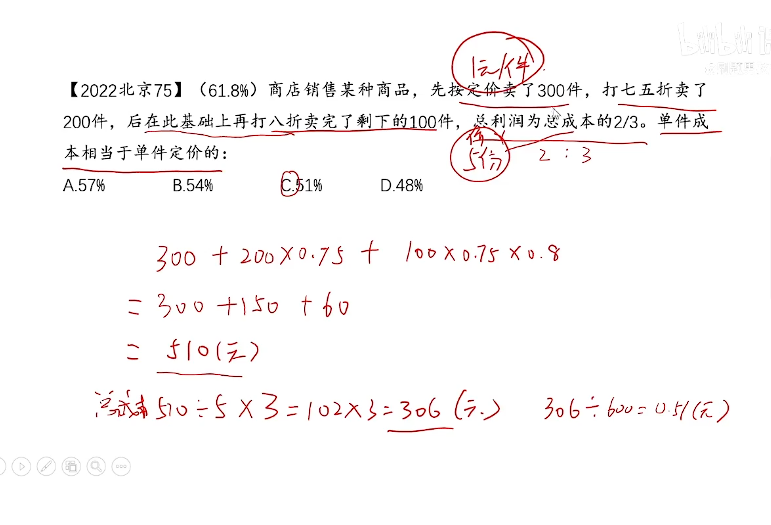 1元/件
【2022北京75】（61.8%）商店销售某种商品，先按定价卖了300件，打七五折卖了
200件，后在此基础上再打八折卖完了剩下的100件，总利润为总成本的2/3。单件成
本相当于单件定价的：
5份
2 : 3
A.57% B.54% C.51% D.48%
300 + 200×0.75 + 100×0.75×0.8
= 300 +150 + 60
= 510(元)
总成本 510÷5×3=102×3=306(元) 306÷600=0.51(元)